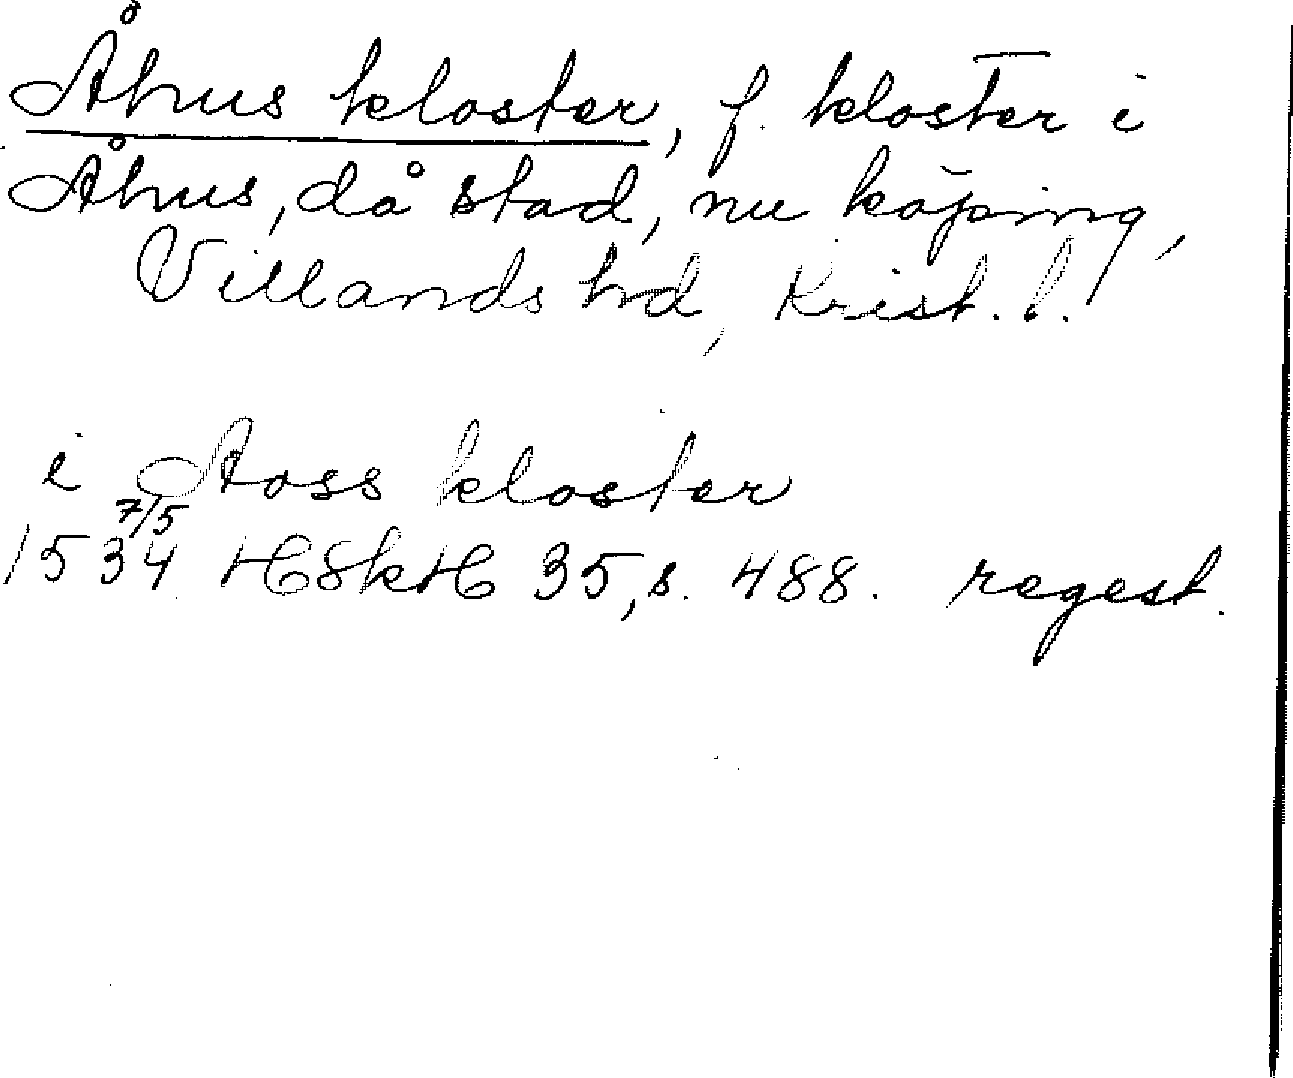 Åhus kloster, f. kloster i
Åhus, då stad, nu köping,
Villands hd, Krist. l.
i Aoss kloster
7/5
1534 HSkH 35, s. 488. regest.